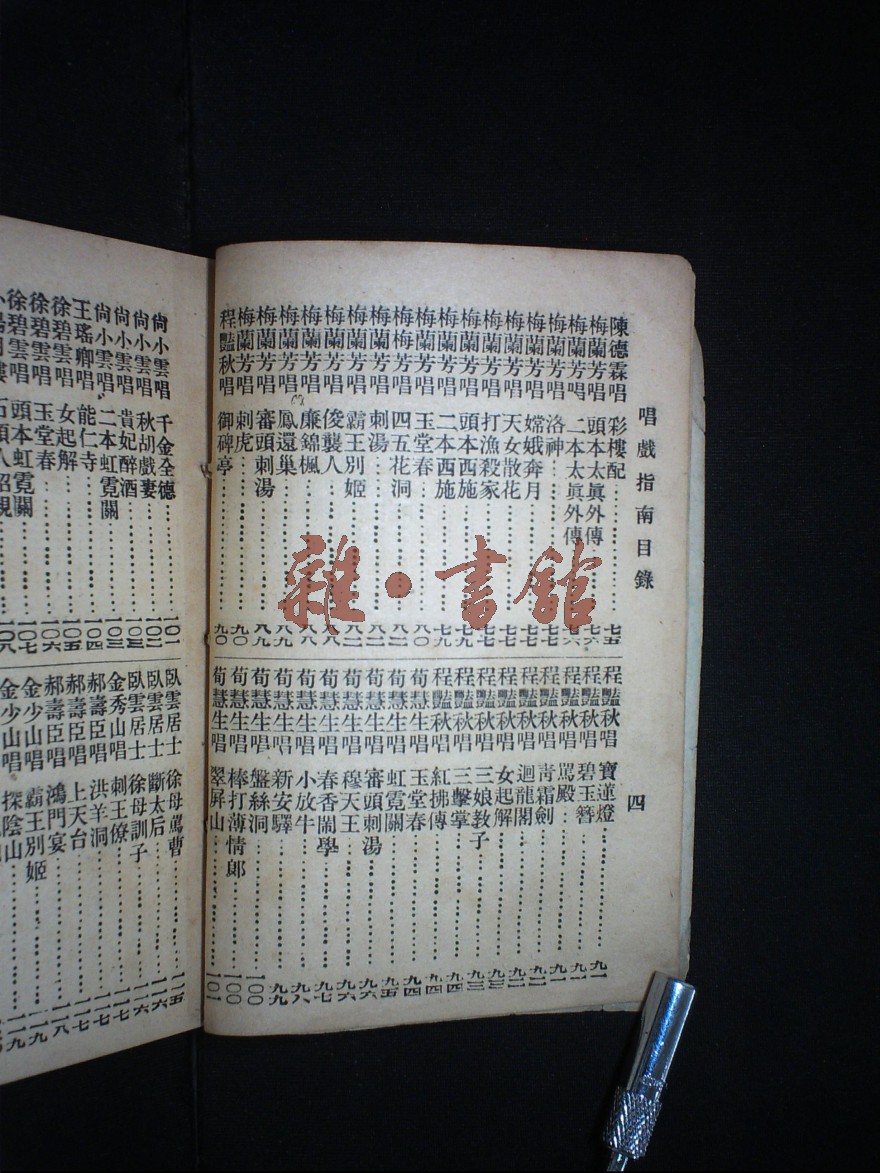 唱戲指南目錄 四
陳德霖唱 彩樓配 七五
梅蘭芳唱 頭本太眞外傳 七六
梅蘭芳唱 二本太眞外傳 七六
梅蘭芳唱 洛神
梅蘭芳唱 嫦娥奔月 七七
梅蘭芳唱 天女散花 七七
梅蘭芳唱 打漁殺家
梅蘭芳唱 頭本西施 七九
梅蘭芳唱 二本西施 七九
梅蘭芳唱 玉堂春 八〇
梅蘭芳唱 四五花洞
梅蘭芳唱 刺湯
梅蘭芳唱 霸王別姬
梅蘭芳唱 俊襲人
梅蘭芳唱 廉錦楓
梅蘭芳唱 鳳還巢 八九
梅蘭芳唱 審頭刺湯 八九
梅蘭芳唱 刺虎 九〇
程豔秋唱 御碑亭 九〇
程豔秋唱 寶蓮燈 九一
程豔秋唱 碧玉簪 九一
程豔秋唱 罵殿
程豔秋唱 青霜劍
程豔秋唱 迴龍閣 九二
程豔秋唱 女起解 九三
程豔秋唱 三娘教子 九三
程豔秋唱 三擊掌 九四
程豔秋唱 紅拂傳 九四
程豔秋唱 玉堂春 九四
荀慧生唱 虹霓關
荀慧生唱 審頭刺湯 九五
荀慧生唱 穆天王 九六
荀慧生唱 春香鬧學 九七
荀慧生唱 小放牛 九八
荀慧生唱 新安驛 九九
荀慧生唱 盤絲洞 一〇〇
荀慧生唱 棒打薄情郎 一〇〇
荀慧生唱 翠屏山 一〇一
尙小雲唱 千金全德
尙小雲唱 秋胡戲妻
尙小雲唱 貴妃醉酒
尙小雲唱 二本虹霓關
王瑤卿唱 能仁寺 一〇四
徐碧雲唱 女起解 一〇五
徐碧雲唱 玉堂春 一〇六
徐碧雲唱 頭本虹霓關 一〇七
臥雲居士 徐母罵曹 一一五
臥雲居士 斷太后 一一六
臥雲居士 徐母訓子 一一六
金秀山唱 刺王僚 一一七
郝壽臣唱 洪羊洞 一一七
郝壽臣唱 上天台 一一七
郝壽臣唱 鴻門宴 一一八
金少山唱 霸王別姬 一一九
金少山唱 探陰山
雜·書舘